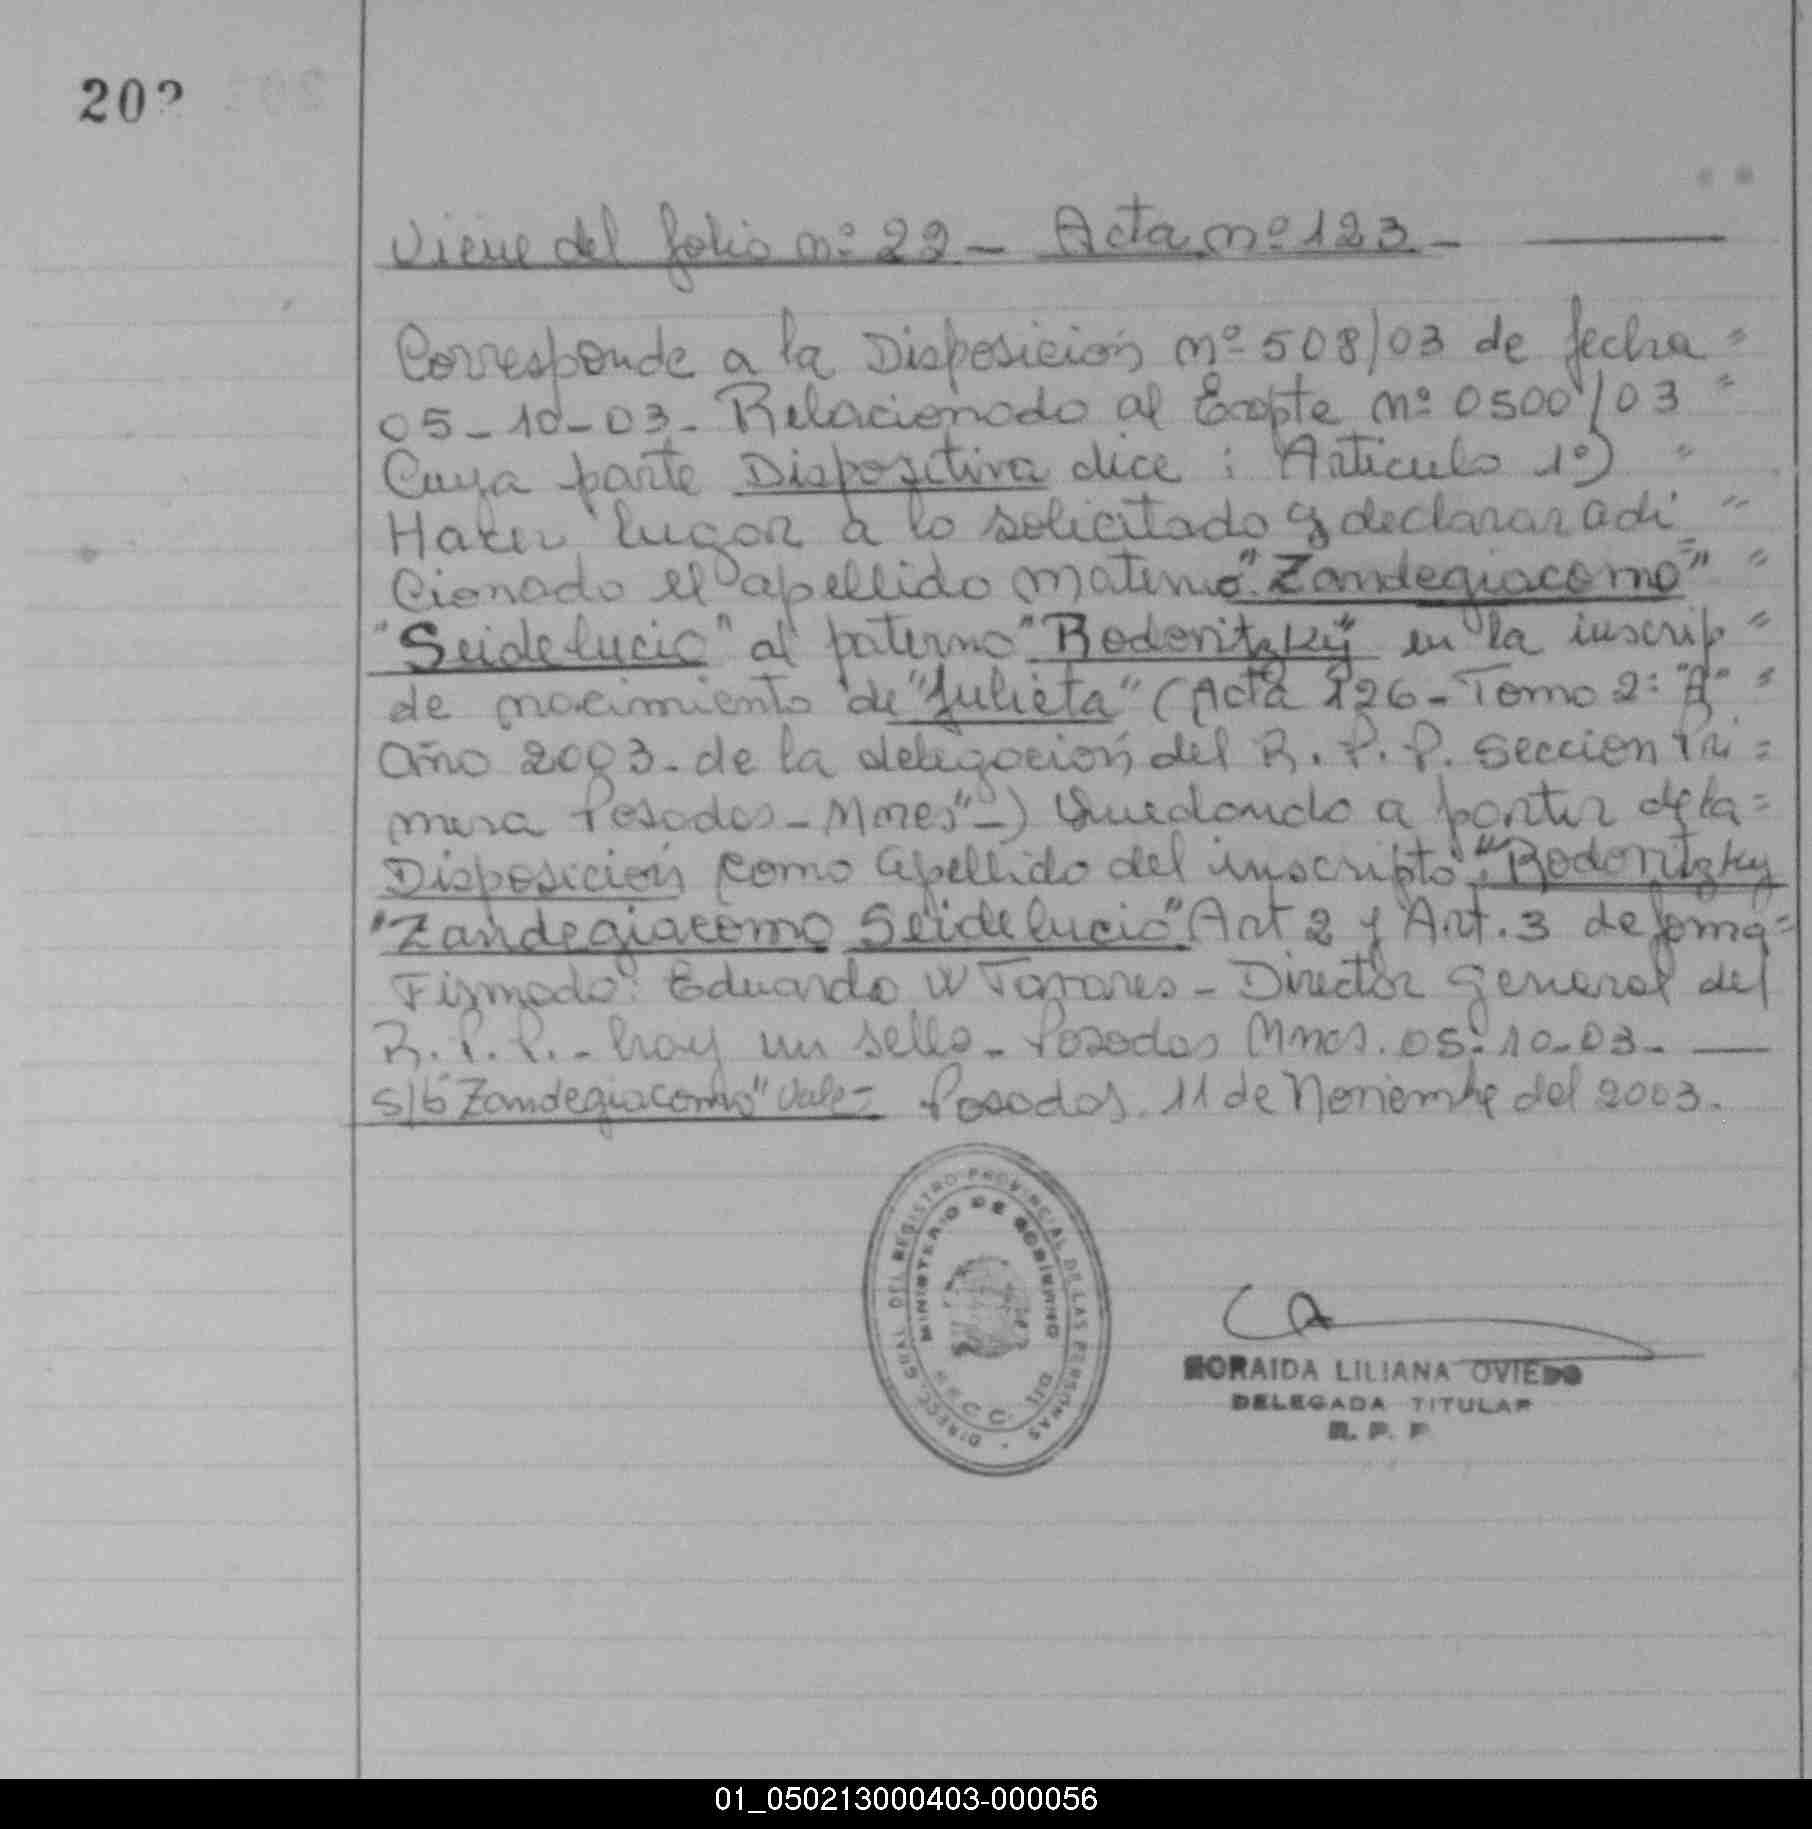 202
Viene del folio nº 22 - Acta nº 123 -
Corresponde a la Disposición nº 508/03 de fecha =
05-10-03- Relacionado al Expte nº 0500/03 =
Cuya parte Dispositiva dice : Articulo 1º) =
Hacer lugar a lo solicitado y declarar adi =
cionado el apellido materno "Zandegiacomo" =
"Seidelucio" al paterno "Rodoritzky" en la inscrip =
de nacimiento de "Julieta" (Acta 126 - Tomo 2º "A" =
Año 2003- de la delegación del R. P. P. Seccion Pri =
mera Posadas - Mnes"-) Quedando a partir de la =
Disposición como apellido del inscripto: "Rodoritzky
"Zandegiacomo Seidelucio" Art 2 y Art. 3 de forma =
Firmado: Eduardo W Tavares - Director general del
R. P. P. - hay un sello - Posadas Mnes. 05-10-03-
s/b "Zandegiacomo" Vale = Posadas 11 de Noviembre del 2003.
DIRECC. GRAL. DEL REGISTRO PROVINCIAL DE LAS PERSONAS
MINISTERIO DE GOBIERNO
ZORAIDA LILIANA OVIEDO
DELEGADA TITULAR
R. P. P
01_050213000403-000056